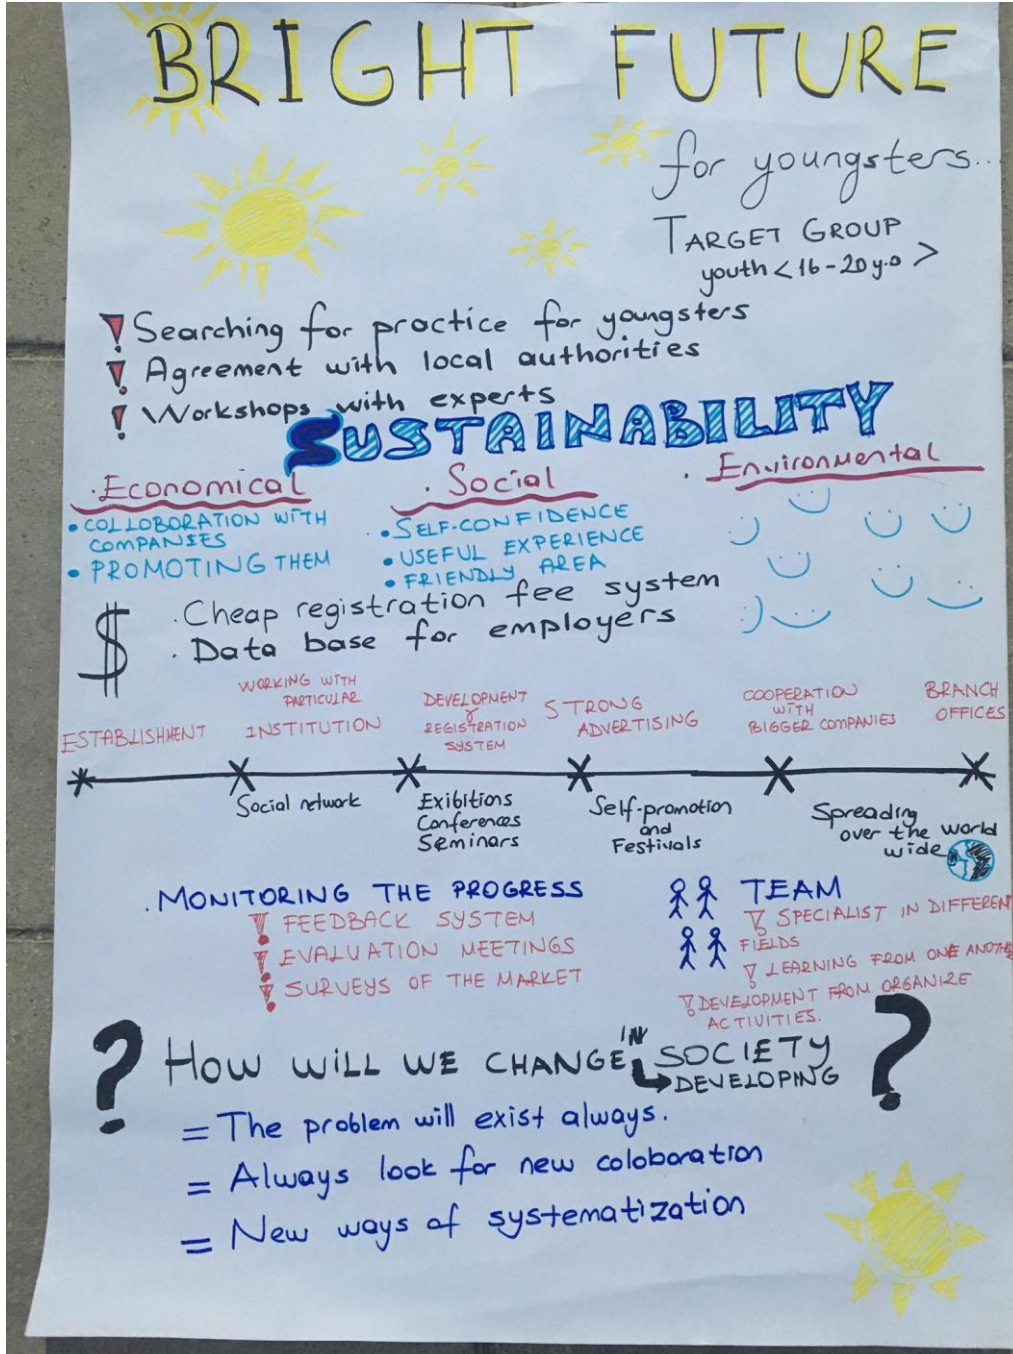 BRIGHT FUTURE
for youngsters...
TARGET GROUP
youth < 16-20 y.o >
! Searching for practice for youngsters
! Agreement with local authorities
! Workshops with experts
SUSTAINABILITY
. Economical
• COLLOBORATION WITH
COMPANIES
• PROMOTING THEM
. Social
• SELF-CONFIDENCE
• USEFUL EXPERIENCE
• FRIENDLY AREA
. Environmental
$
. Cheap registration fee system
. Data base for employers
ESTABLISHMENT
WORKING WITH
PARTICULAR
INSTITUTION
DEVELOPMENT
REGISTRATION
SYSTEM
STRONG
ADVERTISING
COOPERATION
WITH
BIGGER COMPANIES
BRANCH
OFFICES
Social network
Exibitions
Conferences
Seminars
Self-promotion
and
Festivals
Spreading
over the world
wide
. MONITORING THE PROGRESS
! FEEDBACK SYSTEM
! EVALUATION MEETINGS
! SURVEYS OF THE MARKET
TEAM
! SPECIALIST IN DIFFERENT
FIELDS
! LEARNING FROM ONE ANOTHE
! DEVELOPMENT FROM ORGANIZE
ACTIVITIES.
? HOW WILL WE CHANGE IN SOCIETY ?
DEVELOPING
= The problem will exist always.
= Always look for new coloboration
= New ways of systematization